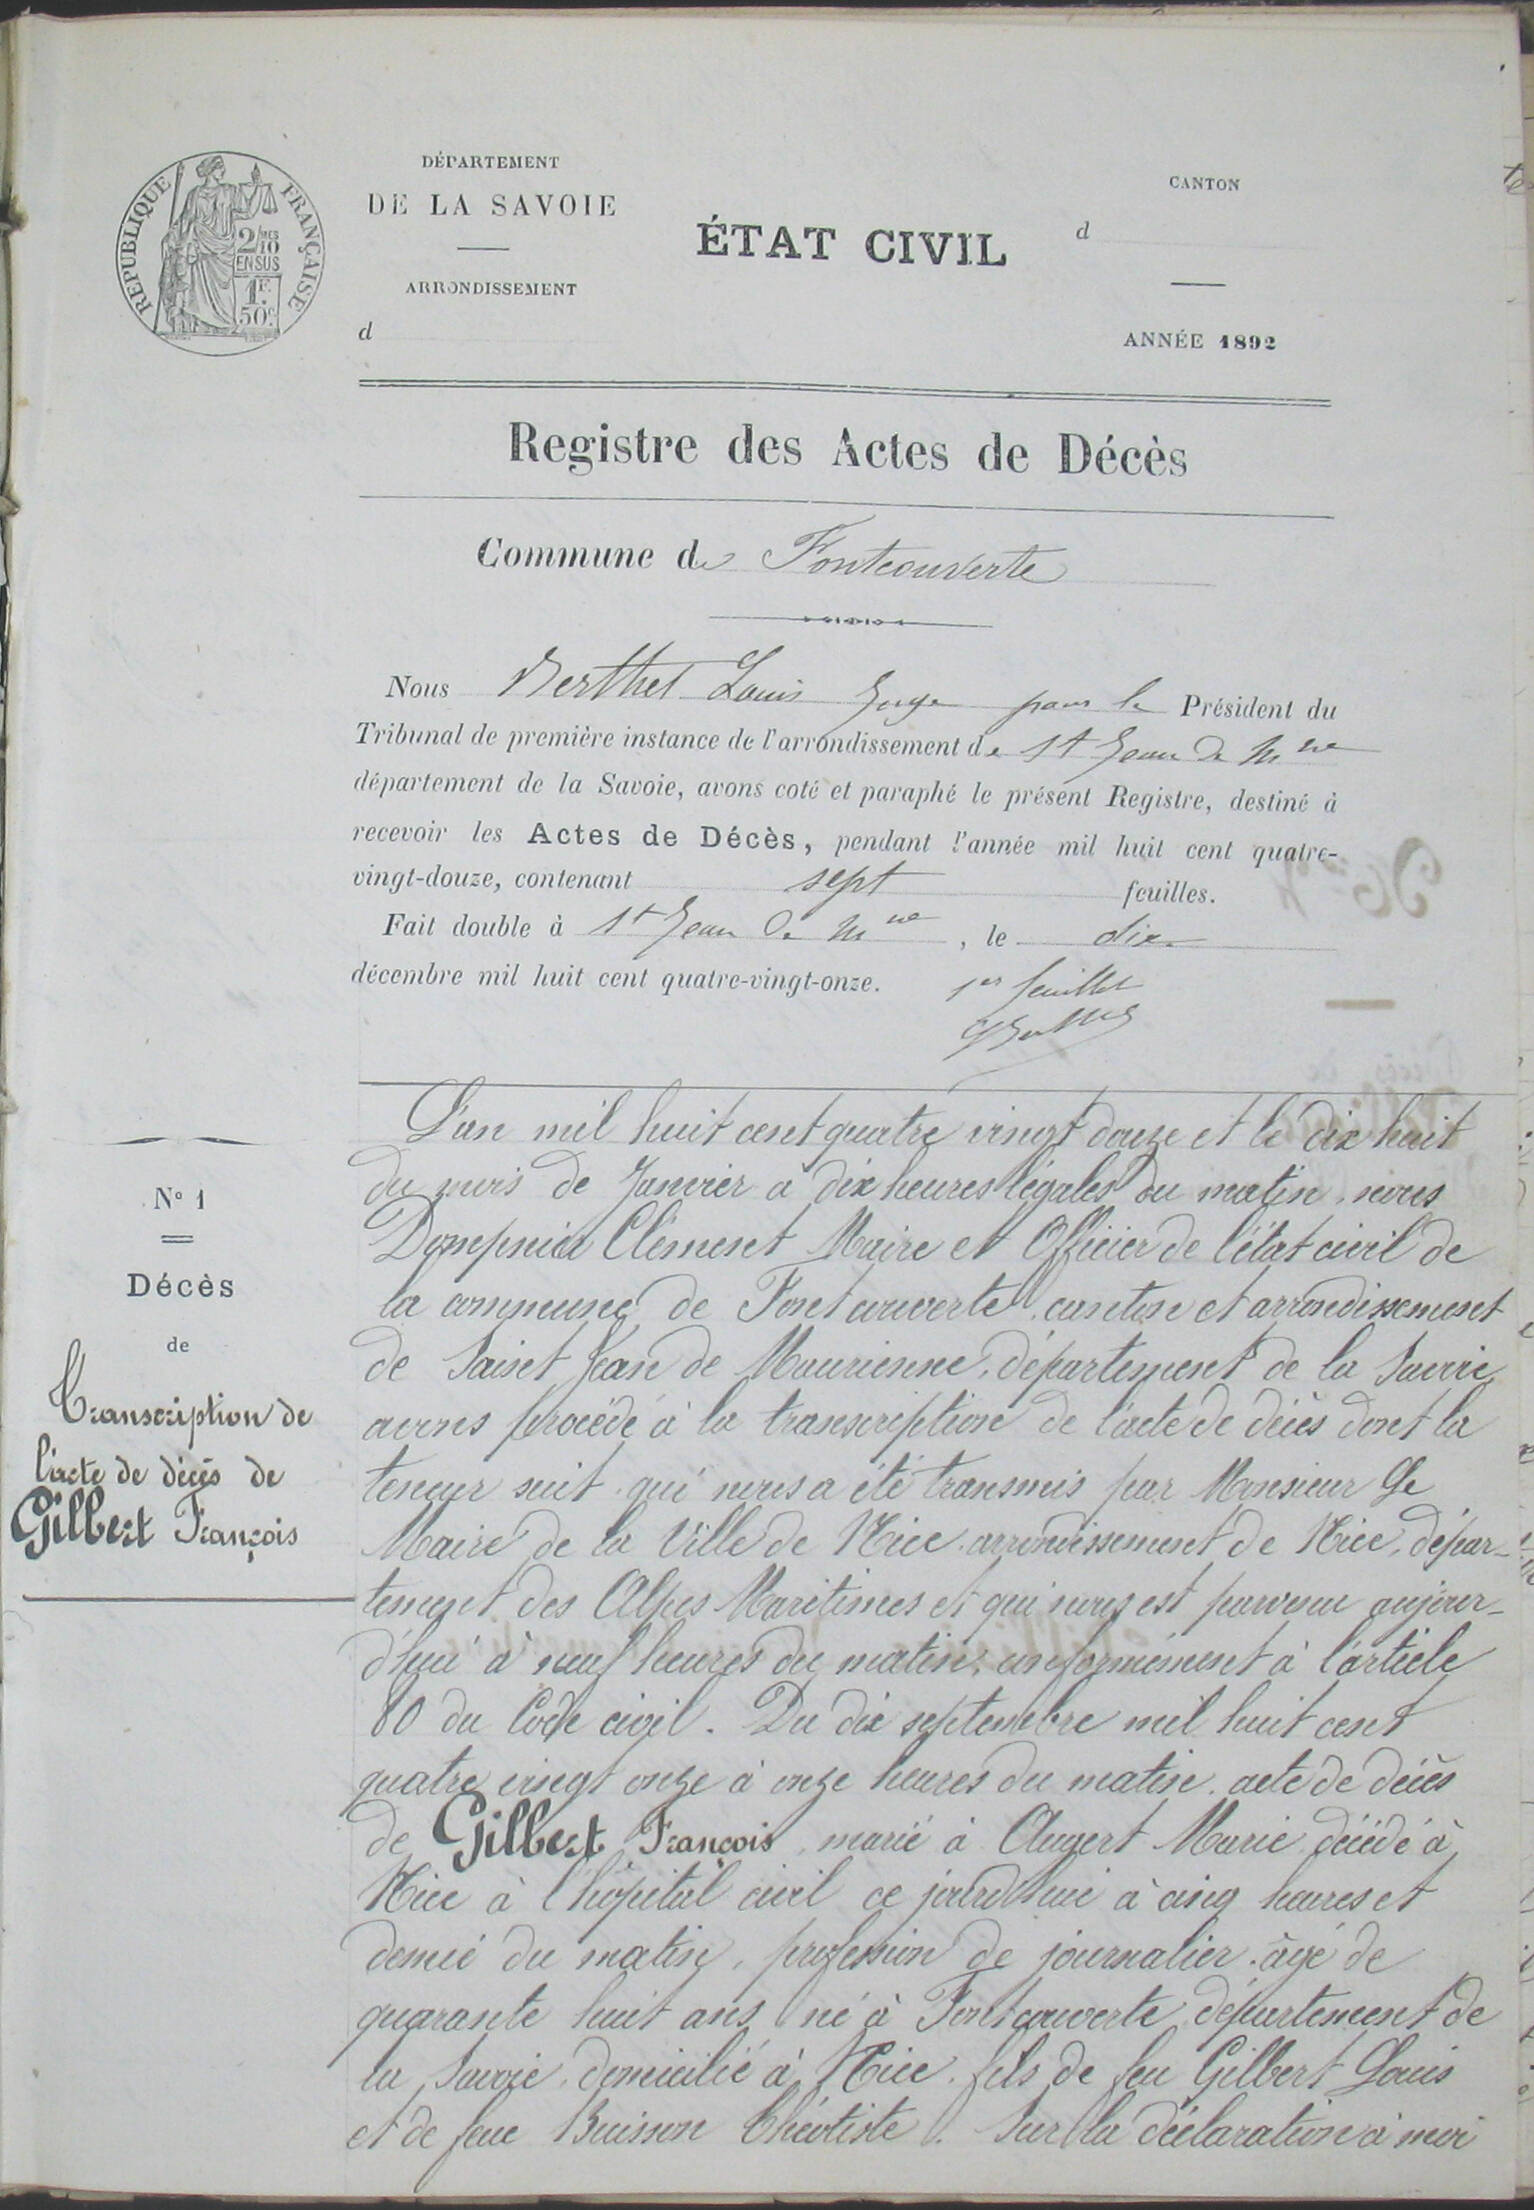 DÉPARTEMENT
DE LA SAVOIE
ARRONDISSEMENT
d
RÉPUBLIQUE FRANÇAISE
2/10 MES
EN SUS
1F.
50c.
ÉTAT CIVIL
CANTON
d
ANNÉE 1892
Registre des Actes de Décès
Commune de Fontcouverte
Nous Berthet Louis Juge pour le Président du
Tribunal de première instance de l'arrondissement de St Jean de Mne
département de la Savoie, avons coté et paraphé le présent Registre, destiné à
recevoir les Actes de Décès, pendant l'année mil huit cent quatre-
vingt-douze, contenant sept feuilles.
Fait double à St Jean de Mne, le dix
décembre mil huit cent quatre-vingt-onze.
1er feuillet
No 1
Décès
de
Transcription de
l'acte de décès de
Gilbert François
L'an mil huit cent quatre vingt douze et le dix huit
du mois de Janvier à dix heures légales du matin, nous
Dompnier Clément Maire et Officier de l'état civil de
la commune de Fontcouverte, canton et arrondissement
de Saint Jean de Maurienne, département de la Savoie,
avons procédé à la transcription de l'acte de décès dont la
teneur suit, qui nous a été transmis par Monsieur Le
Maire de la Ville de Nice, arrondissement de Nice, dépar-
tement des Alpes Maritimes et qui nous est parvenu aujour-
d'hui à neuf heures du matin, conformément à l'article
80 du Code civil. Du dix septembre mil huit cent
quatre vingt onze à onze heures du matin, acte de décès
de Gilbert François, marié à Augert Marie, décédé à
Nice à l'hôpital civil ce jourd'hui à cinq heures et
demie du matin, profession de journalier, âgé de
quarante huit ans, né à Fontcouverte, département de
la Savoie, domicilié à Nice, fils de feu Gilbert Louis
et de feue Buisson Théotiste. Sur la déclaration à moi